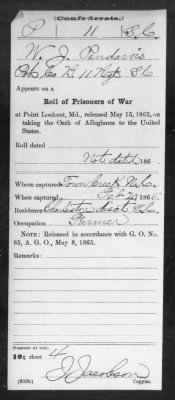 (Confederate.)
P 11 S.C.
W. J. Pendervis
Co. K, 11 Reg't S.C.
Appears on a
Roll of Prisoners of War
at Point Lookout, Md., released May 15, 1865, on
taking the Oath of Allegiance to the United
States.
Roll dated
Not dated, 186 .
Where captured Town Creek N.C.
When captured Feb 20, 1865.
Residence Charleston Dist S.C.
Occupation Farmer
NOTE: Released in accordance with G. O. No.
85, A. G. O., May 8, 1865.
Remarks:
Number of roll:
10; sheet 4
J Jacobson
(639b) Copyist.